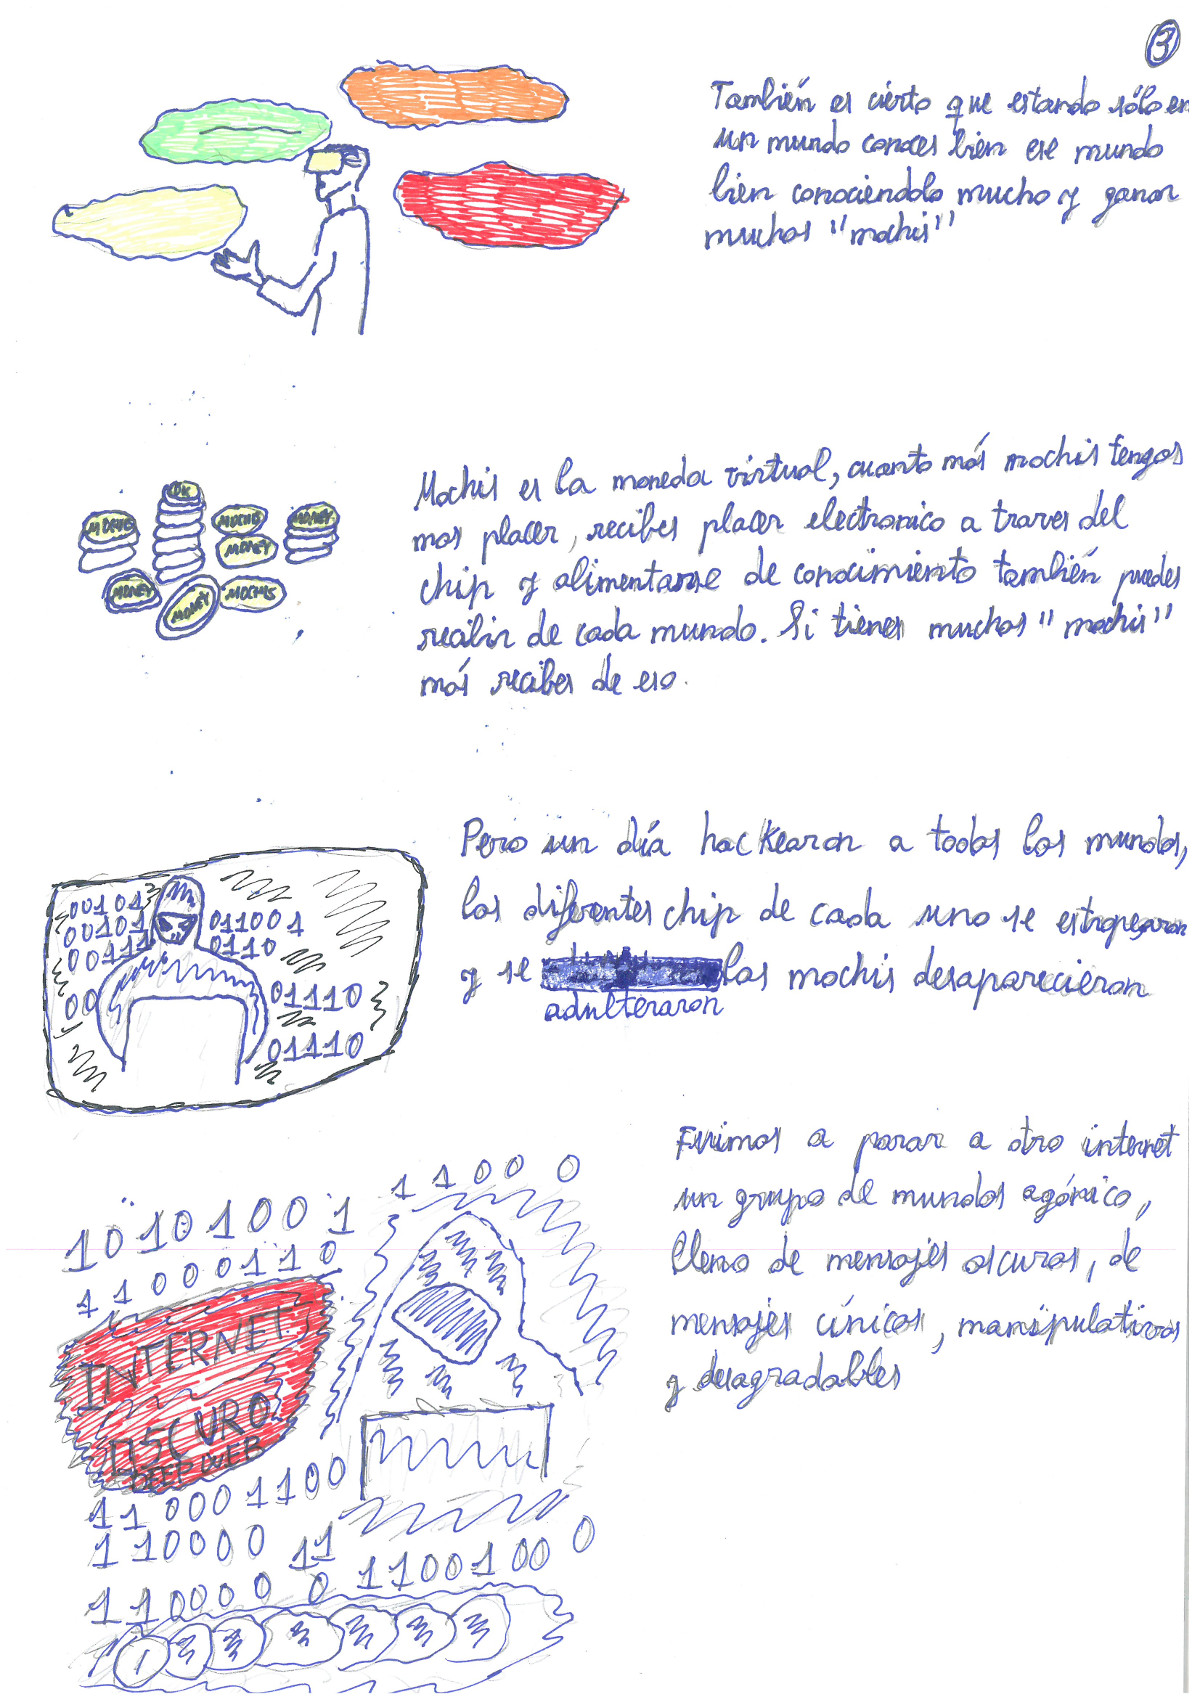 3
También es cierto que estando sólo en
un mundo conoces bien ese mundo
bien conociendolo mucho y ganar
muchos "mochis"
OK
MOCHIS
MOCHIS
MONEY
MONEY
MONEY
MONEY
MOCHIS
Mochis es la moneda virtual, cuanto más mochis tengas
mas placer, recibes placer electronico a traves del
chip y alimentarse de conocimiento también puedes
recibir de cada mundo. Si tienes muchos "mochis"
más recibes de eso.
Pero un día hackearon a todos los mundos,
los diferentes chip de cada uno se estropearon
y se los mochis desaparecieron
adulteraron
00101
00101
011001
00111
0110
00
01110
01110
Fuimos a parar a otro internet
un grupo de mundos agónico,
lleno de mensajes oscuros, de
mensajes cínicos, manipulativos
y desagradables
1100 0
1010100 1
11000110
INTERNET
OSCURO
DEEP WEB
110001100
110000 11
110000 0 1100100 0
1